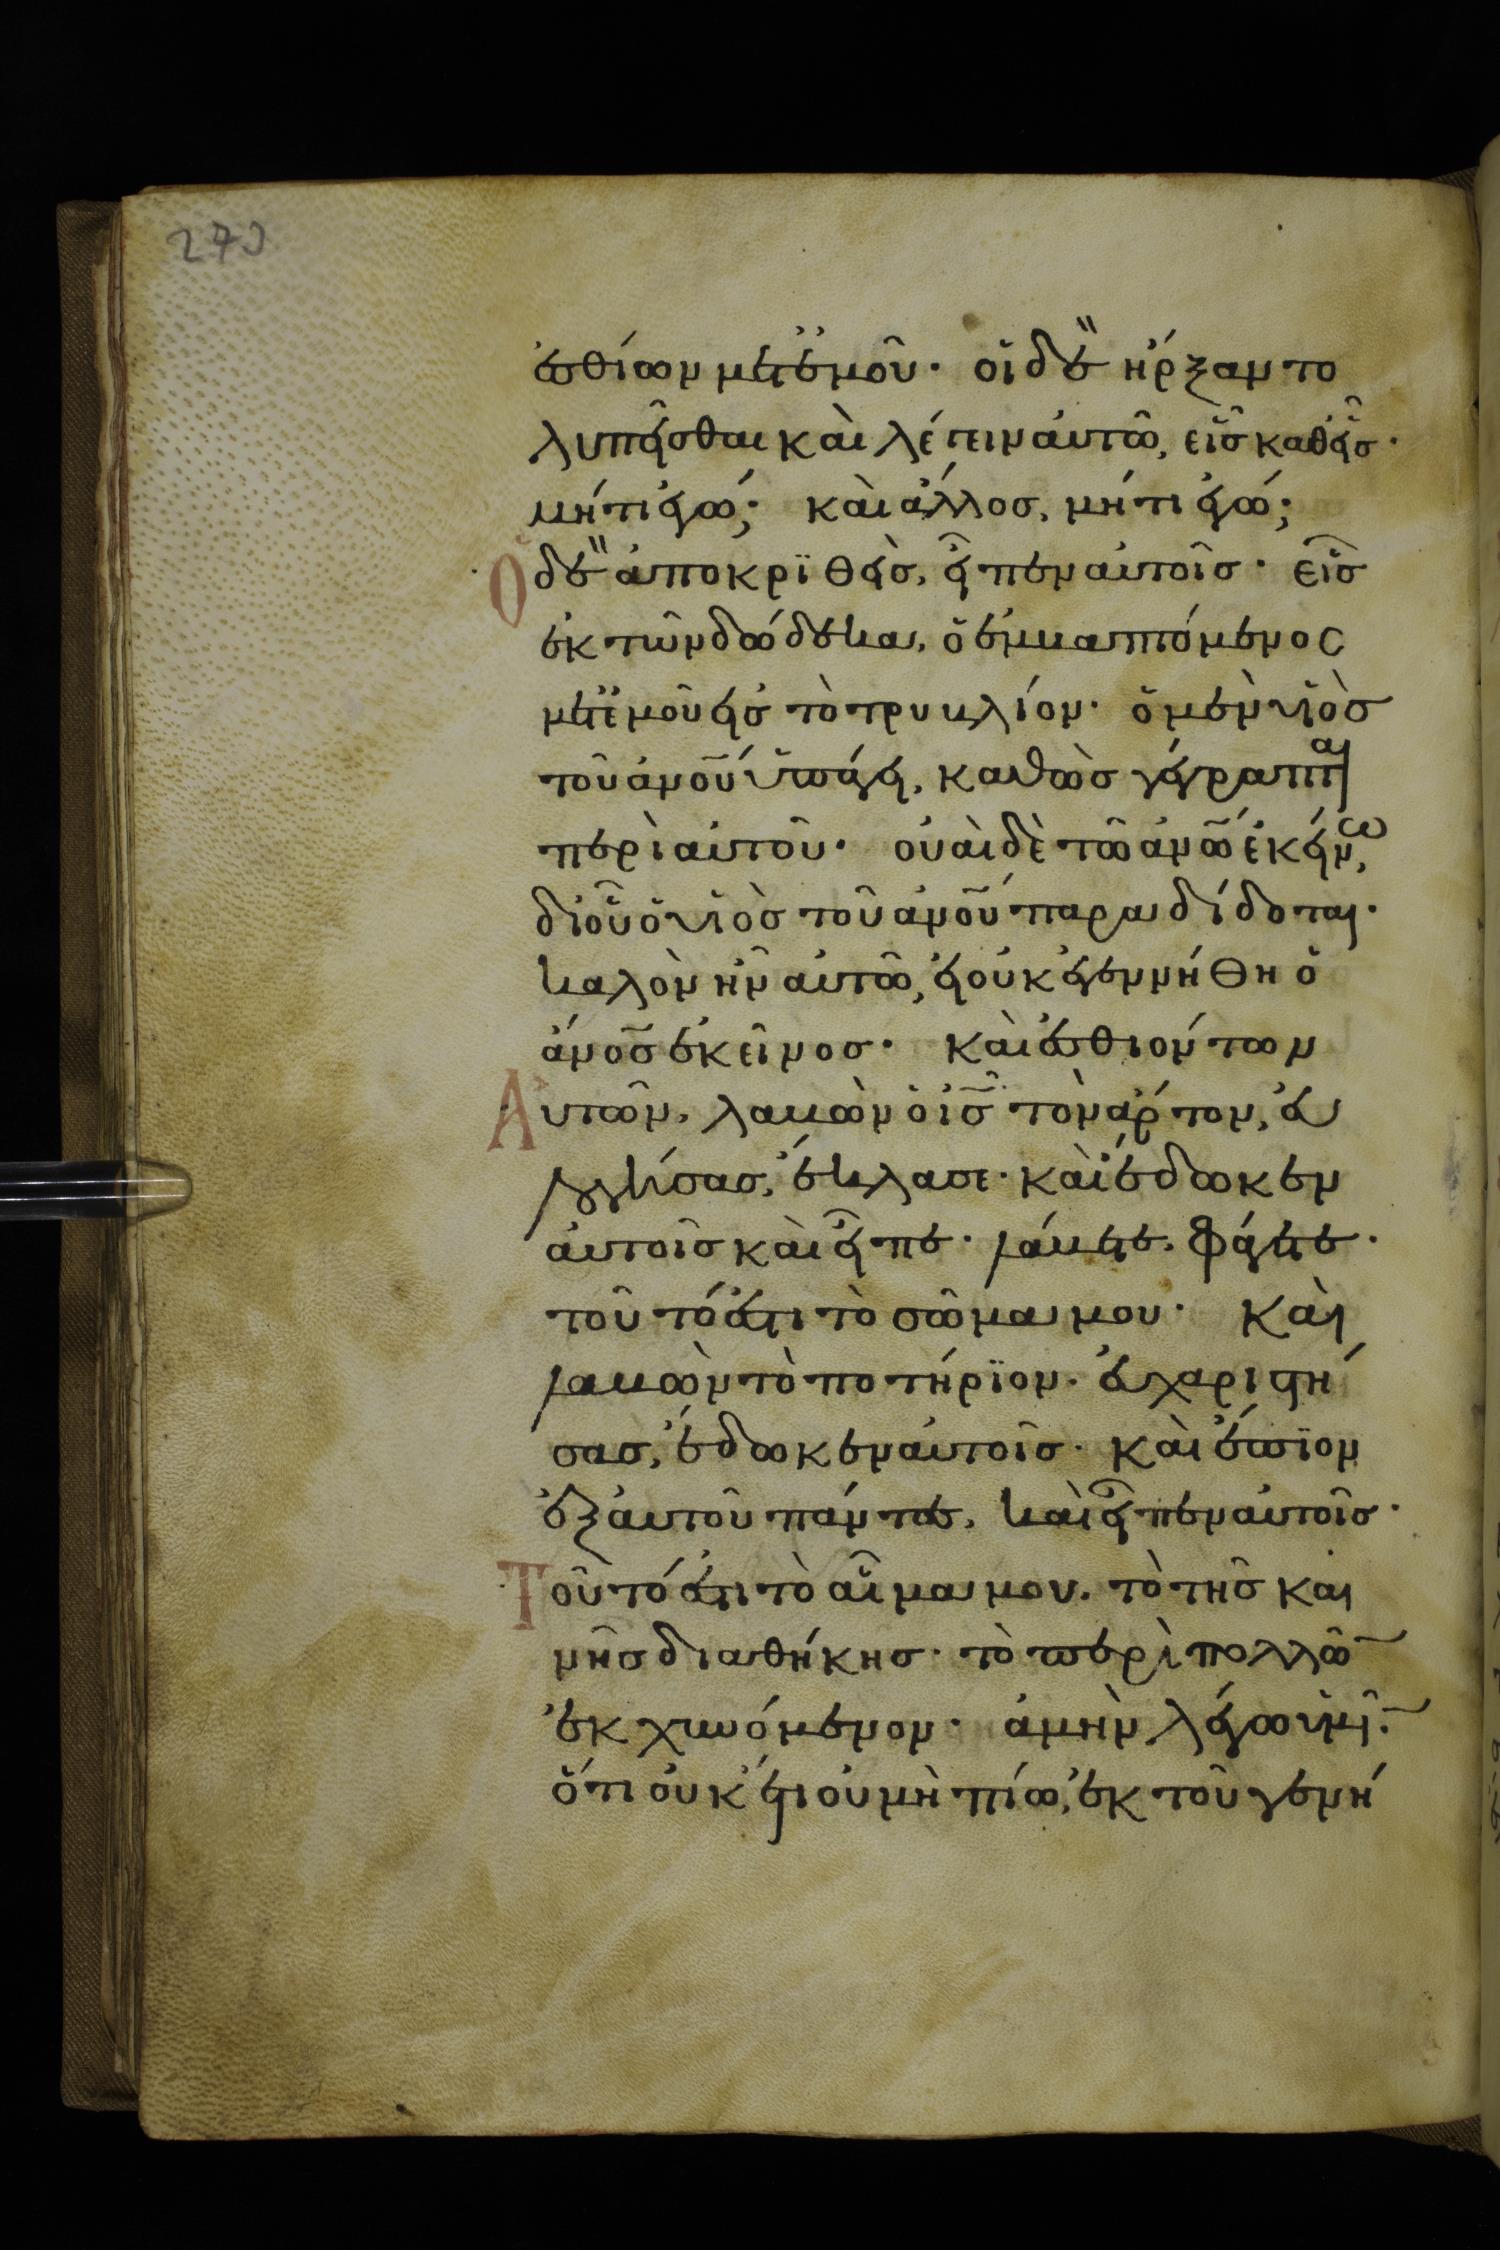 270
ἐσθίων μετ' ἐμοῦ· οἱ δὲ ἤρξαντο
λυπεῖσθαι καὶ λέγειν αὐτῶ, εἷς καθεῖς·
μήτι ἐγώ; καὶ ἄλλος, μήτι ἐγώ;
Ὁ δὲ ἀποκριθεὶς, εἶπεν αὐτοῖς· εἷς
ἐκ τῶν δώδεκα, ὁ ἐμβαπτόμενος
μετ' ἐμοῦ εἰς τὸ τρυβλίον· ὁ μὲν υἱὸς
τοῦ ἀνου ὑπάγει, καθὼς γέγραπται
περὶ αὐτοῦ· οὐαὶ δὲ τῶ ἀνω ἐκείνω,
δι οὗ ὁ υἱὸς τοῦ ἀνου παραδίδοται·
καλὸν ἦν αὐτῶ, εἰ οὐκ ἐγεννήθη ὁ
ἀνος ἐκεῖνος· καὶ ἐσθιόντων
Αὐτῶν, λαβὼν ὁ ις τὸν ἄρτον, εὐ
λογήσας, ἔκλασε· καὶ ἔδωκεν
αὐτοῖς καὶ εἶπε· λάβετε, φάγετε·
τοῦτό ἐστι τὸ σῶμα μου· Καὶ
λαβὼν τὸ ποτήριον· εὐχαριστή
σας, ἔδωκεν αὐτοῖς· καὶ ἔπιον
ἐξ αὐτοῦ πάντες, καὶ εἶπεν αὐτοῖς·
Τοῦτό ἐστι τὸ αἷμα μου, τὸ τῆς και
νῆς διαθήκης· τὸ περὶ πολλῶ
ἐκχυνόμενον· ἀμὴν λέγω ὑμῖ·
ὅτι οὐκ έτι οὐ μὴ πίω, ἐκ τοῦ γενή